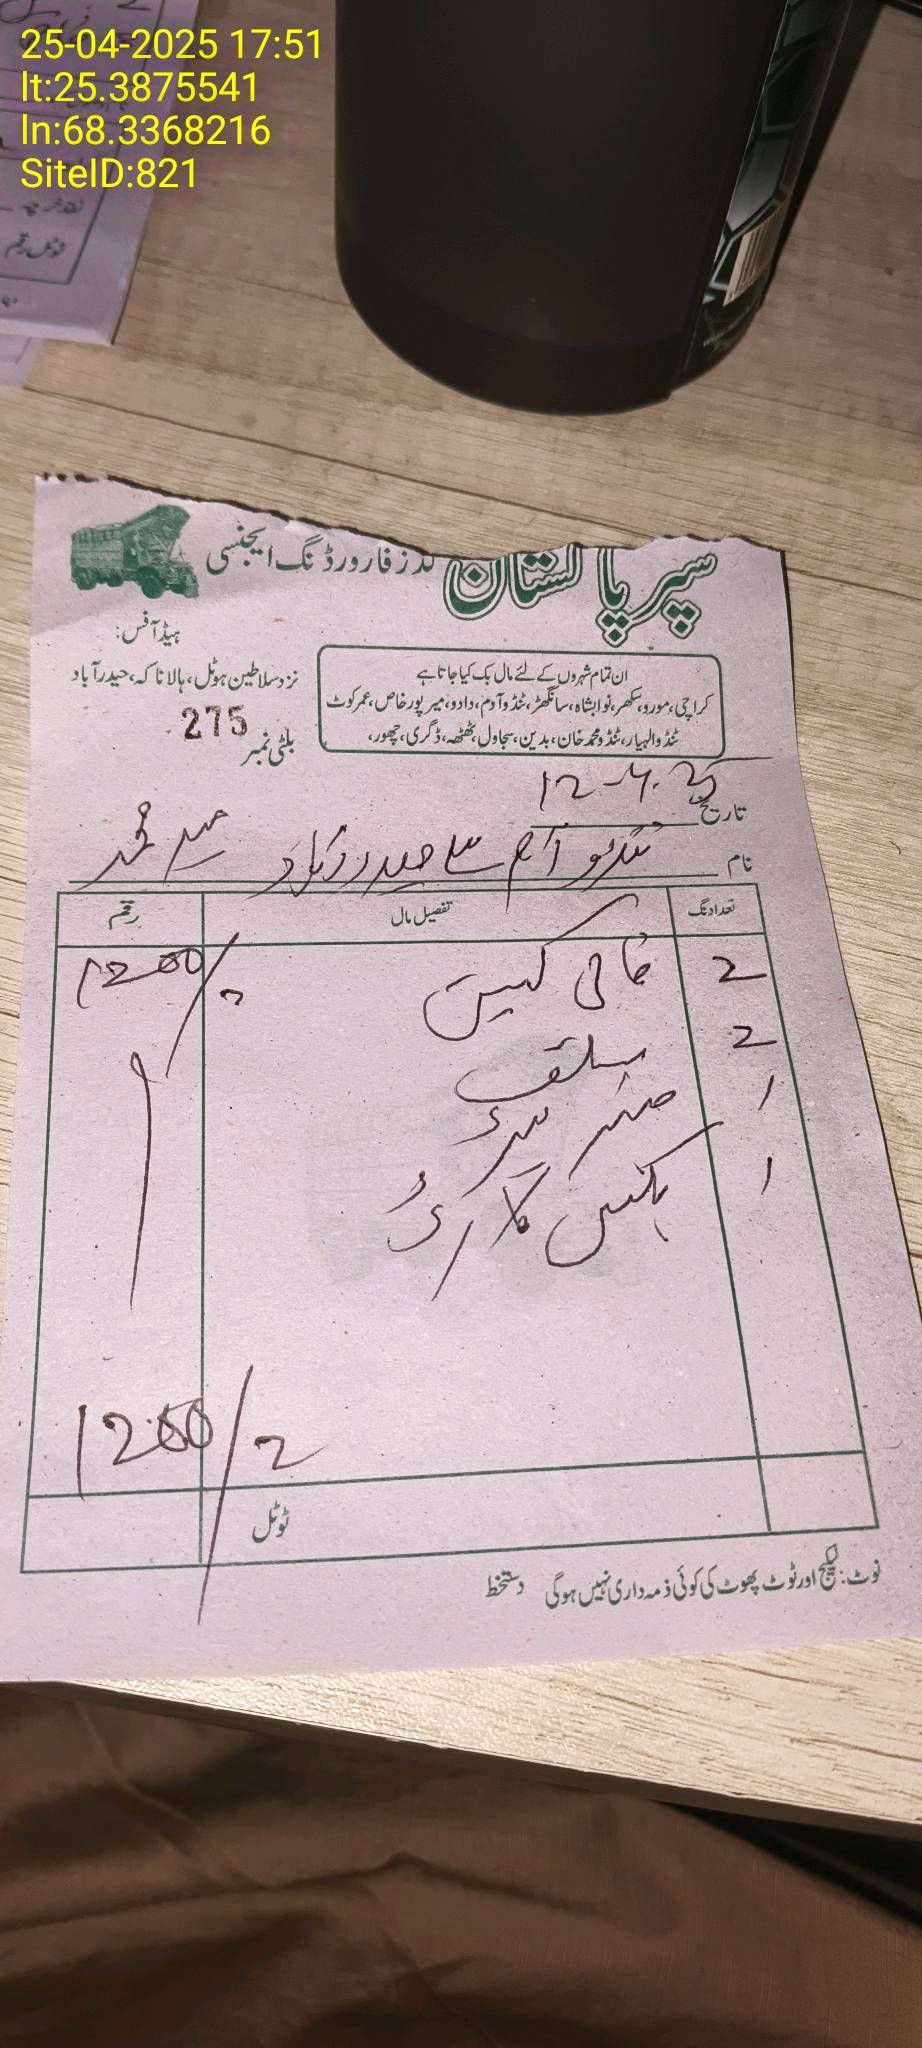 25-04-2025 17:51
lt:25.3875541
ln:68.3368216
SiteID:821
نقد خرچہ
ٹوٹل رقم
سپر پاکستان گڈز فارورڈنگ ایجنسی
ہیڈ آفس:
نزد سلاطین ہوٹل، ہالا ناکہ، حیدرآباد
ان تمام شہروں کے لئے مال بک کیا جاتا ہے
کراچی، مورو، سکھر، نوابشاہ، سانگھڑ، ٹنڈو آدم، دادو، میرپورخاص، عمرکوٹ
ٹنڈو الہیار، ٹنڈو محمد خان، بدین، سجاول، ٹھٹھہ، ڈگری، چھور،
بلٹی نمبر 275
تاریخ 12-4-25
نام ٹنڈو آدم سے حیدرآباد
تعداد نگ تفصیل مال رقم
2 1200/2
2
1
1 باکس
1200/2
ٹوٹل
نوٹ: لیکیج اور ٹوٹ پھوٹ کی کوئی ذمہ داری نہیں ہوگی دستخط